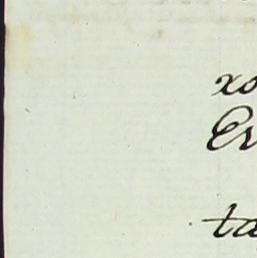 xo
Er
ta